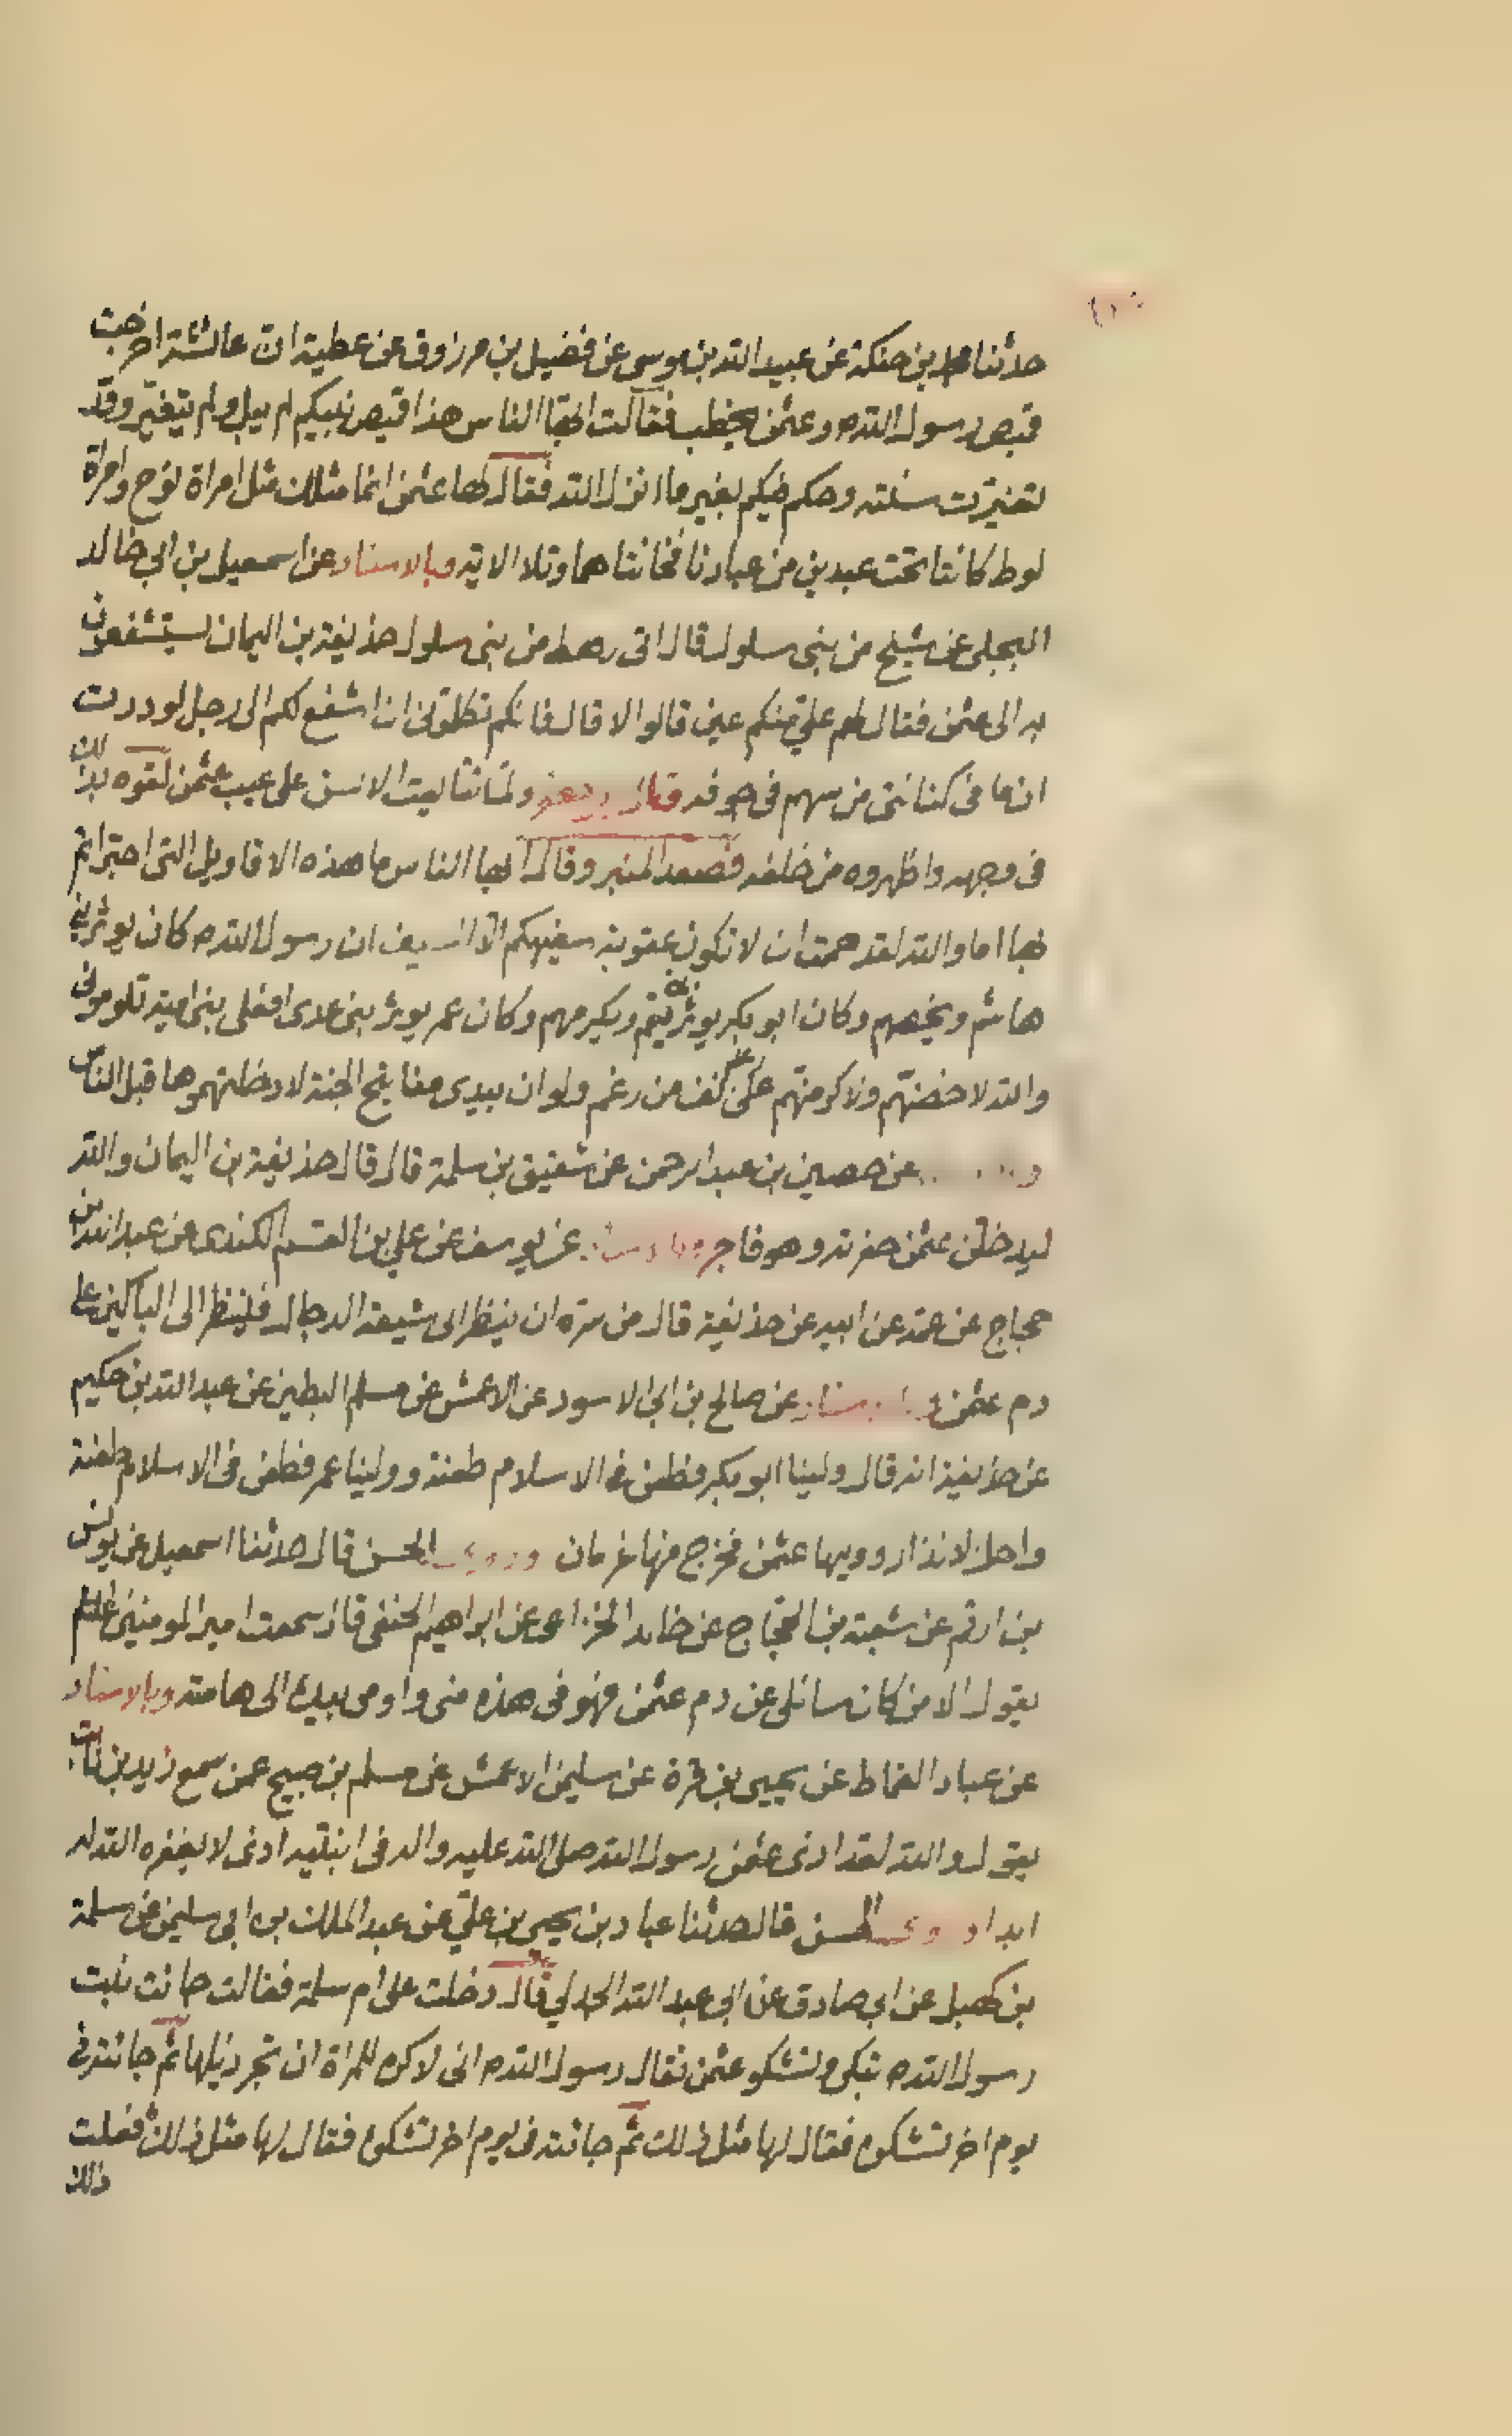 حدثنا محمد بن حنكة عن عبيد الله بن موسى عن فضيل بن مرزوق عن عطية ان عائشة اخرجت
قميص رسول الله ص وعثمن يخطب فقالت ايها الناس هذا قميص نبيكم لم يبل ولم يتغير وقد
تغيرت سنته وحكم فيكم بغير ما انزل الله فقال لها عثمن انما مثلك مثل امراة نوح وامراة
لوط كانتا تحت عبدين من عبادنا فخانتاهما وتلا الاية وبالاسناد عن اسمعيل بن ابي خالد
البجلي عن شيخ من بني سلول قال اتى رهط من بني سلول حذيفة بن اليمان يستشفعون
به الى عثمن فقال لهم علي منكم عين قالوا لا قال فانكم تكلفوني ان اشفع لكم الى رجل لوددت
ان ما في كنانتي من سهم في جوفه قال ولما تتابعت الالسن على عيب عثمن لقوه بذلك
في وجهه واظهروه من خلفه فصعد المنبر وقال ايها الناس ما هذه الاقاويل التي اجتراتم
بها اما والله لقد هممت ان لا تكون عقوبة سفيهكم الا السيف ان رسول الله ص كان يوثر بني
هاشم ويخصهم وكان ابو بكر يوثر بتيم ويكرمهم وكان عمر يوثر بني عدي افعلى بني امية تلوموني
والله لاخصنهم ولاكرمنهم على رغم انف من رغم ولو ان بيدي مفاتيح الجنة لادخلتهموها قبل الناس
عن حصين بن عبد الرحمن عن شقيق بن سلمة قال قال حذيفة بن اليمان والله
ليدخلن عثمن حفرته وهو فاجر عن يوسف عن علي بن القسم الكندي عن عبد الله بن
حجاج عن عمه عن ابيه عن حذيفة قال من سره ان ينظر الى شيعة الدجال فلينظر الى الباكين على
دم عثمن وبالاسناد عن صالح بن ابي الاسود عن الاعمش عن مسلم البطين عن عبد الله بن حكيم
عن حذيفة انه قال ولينا ابو بكر فطعن في الاسلام طعنة وولينا عمر فطعن في الاسلام طعنة
واحل الانذار ووليها عثمن فخرج منها عريان وروى الحسن قال حدثنا اسمعيل عن يونس
بن ارقم عن شعبة بن الحجاج عن خالد الخزاعي عن ابراهيم الحنفي قال سمعت امير المومنين عليه السلم
يقول الا من كان سائلي عن دم عثمن فهو في هذه مني واومى بيده الى هامته وبالاسناد
عن عباد القماط عن يحيى بن قرة عن سليمن الاعمش عن مسلم بن صبيح عمن سمع زيد بن ثابت
يقول والله لقد اذى عثمن رسول الله صلى الله عليه واله في ابنتيه اذى لا يغفره الله له
ابدا وروى الحسن قال حدثنا عباد بن يحيى بن علي عن عبد الملك بن ابي سليمن عن سلمة
بن كهيل عن ابي صادق عن ابي عبد الله الجدلي قال دخلت على ام سلمة فقالت جائت بنت
رسول الله ص تبكي وتشكو عثمن فقال رسول الله ص اني لاكره للمراة ان تجر ذيلها ثم جائته في
يوم اخر تشكوه فقال لها مثل ذلك ثم جائته في يوم اخر تشكوه فقال لها مثل ذلك ففعلت
ذلك